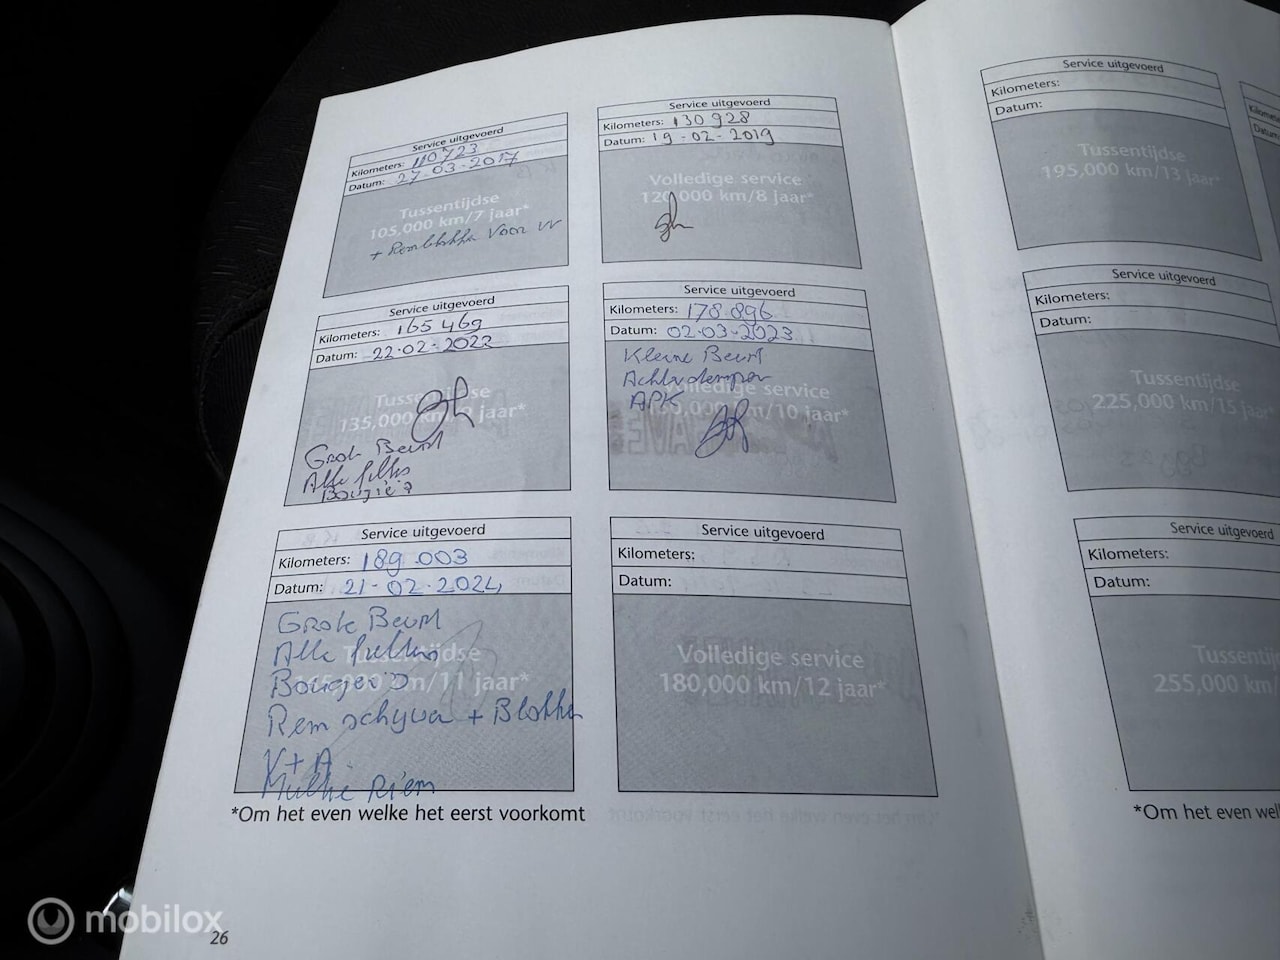 Service uitgevoerd
Kilometers: 110723
Datum: 27-03-2017
Tussentijdse
105,000 km/7 jaar*
+ Remblokken Voor vv
Service uitgevoerd
Kilometers: 130928
Datum: 19-02-2019
Volledige service
120,000 km/8 jaar*
Service uitgevoerd
Kilometers: 165469
Datum: 22-02-2022
Tussentijdse
135,000 km/9 jaar*
Grote Beurt
Alle filters
Bougie's
Service uitgevoerd
Kilometers: 178896
Datum: 02-03-2023
Kleine Beurt
Achterdemper
Volledige service
APK
km/10 jaar*
Service uitgevoerd
Kilometers: 189.003
Datum: 21-02-2024
Grote Beurt
Alle filters
Tussentijdse
Bougies
km/11 jaar*
Rem schyven + Blokken
V+A
Multie Riem
Service uitgevoerd
Kilometers:
Datum:
Volledige service
180,000 km/12 jaar*
*Om het even welke het eerst voorkomt
26
Service uitgevoerd
Kilometers:
Datum:
Tussentijdse
195,000 km/13 jaar*
Service uitgevoerd
Kilometers:
Datum:
Tussentijdse
225,000 km/15 jaar*
Service uitgevoerd
Kilometers:
Datum:
Tussenti
255,000 km/
*Om het even wel
mobilox